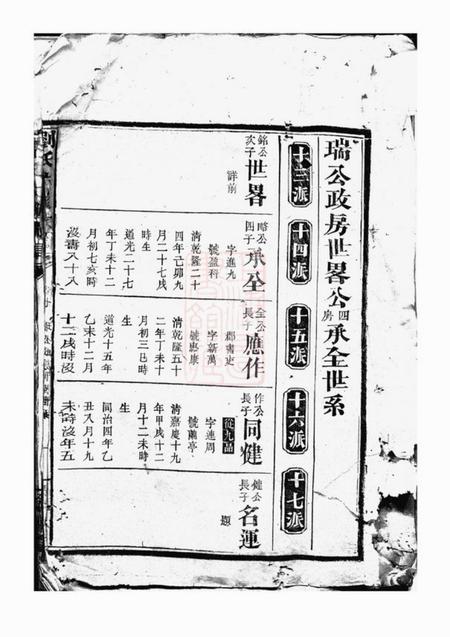 瑞公政房世畧公四房承全世系
十三派
十四派
十五派
十六派
十七派
銘公次子世畧
詳前
畧公四子承全
字進九
號盈科
清乾隆二十
四年己卯九
月二十七戌
時生
道光二十七
年丁未十二
月初七亥時
沒壽八十八
全公長子應作
郡書吏
字新萬
號惠康
清乾隆五十
二年丁未十
月初三巳時
生
道光十五年
乙未十二月
十二戌時沒
作公長子同煡
從九品
字連周
號蘭亭
清嘉慶十九
年甲戌十二
月十二未時
生
同治四年乙
丑八月十九
未時沒年五
公長子名運